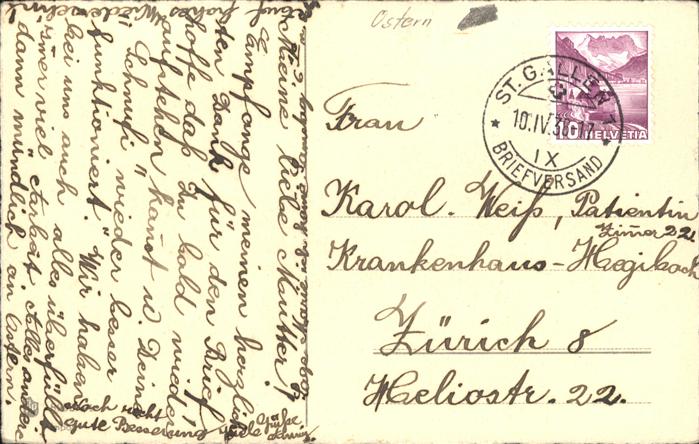 Ostern
ST. GALLEN 1
10.IV.38-17
IX
BRIEFVERSAND
10 HELVETIA
Frau
Karol. Weiß, Patientin
Zimer 22
Krankenhaus-Hegibach
Zürich 8
Heliostr. 22.
Meine liebe Mutter!
Empfange meinen herzli
ten Dank für den Brief,
hoffe daß Du bald wieder
aufstehen kanst u. Deine
"Schnufi" wieder besser
funktioniert. Wir haben
bei uns auch alles überfüllt
imer viel Arbeit. Alles andere
dann mündlich an Ostern.
Noch recht
gute Besserung
viele Grüße
auf frohes Wiedersehn